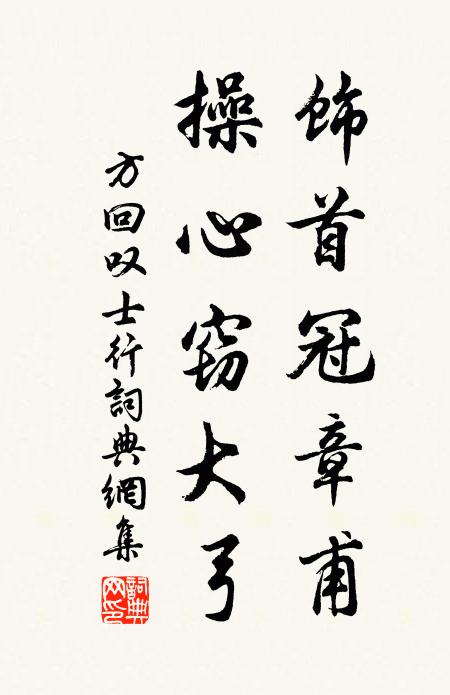 飾首冠章甫
操心窃大弓
方回叹士行詞典網集
詞典网印